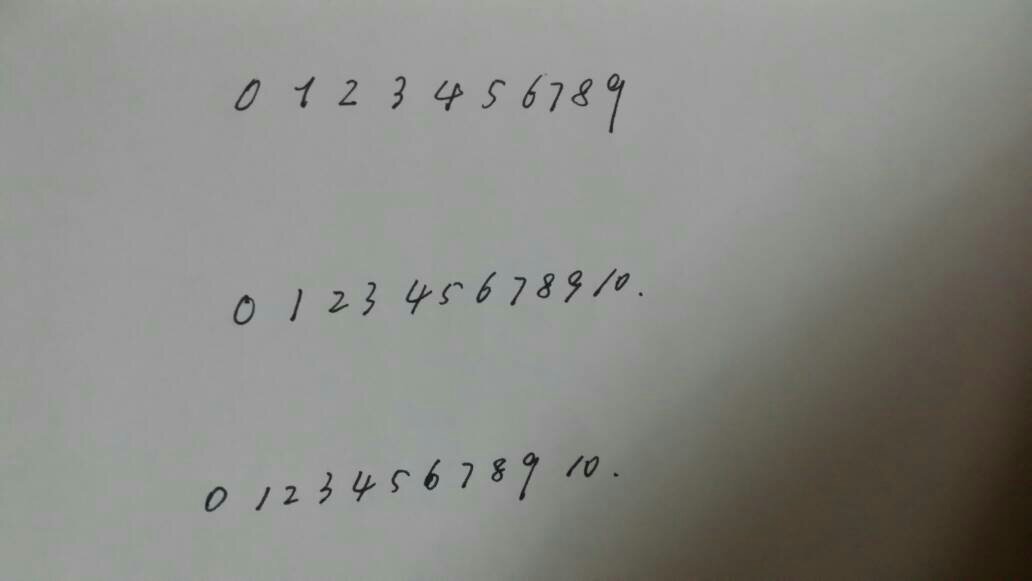 0 1 2 3 4 5 6 7 8 9
0 1 2 3 4 5 6 7 8 9 10.
0 1 2 3 4 5 6 7 8 9 10.